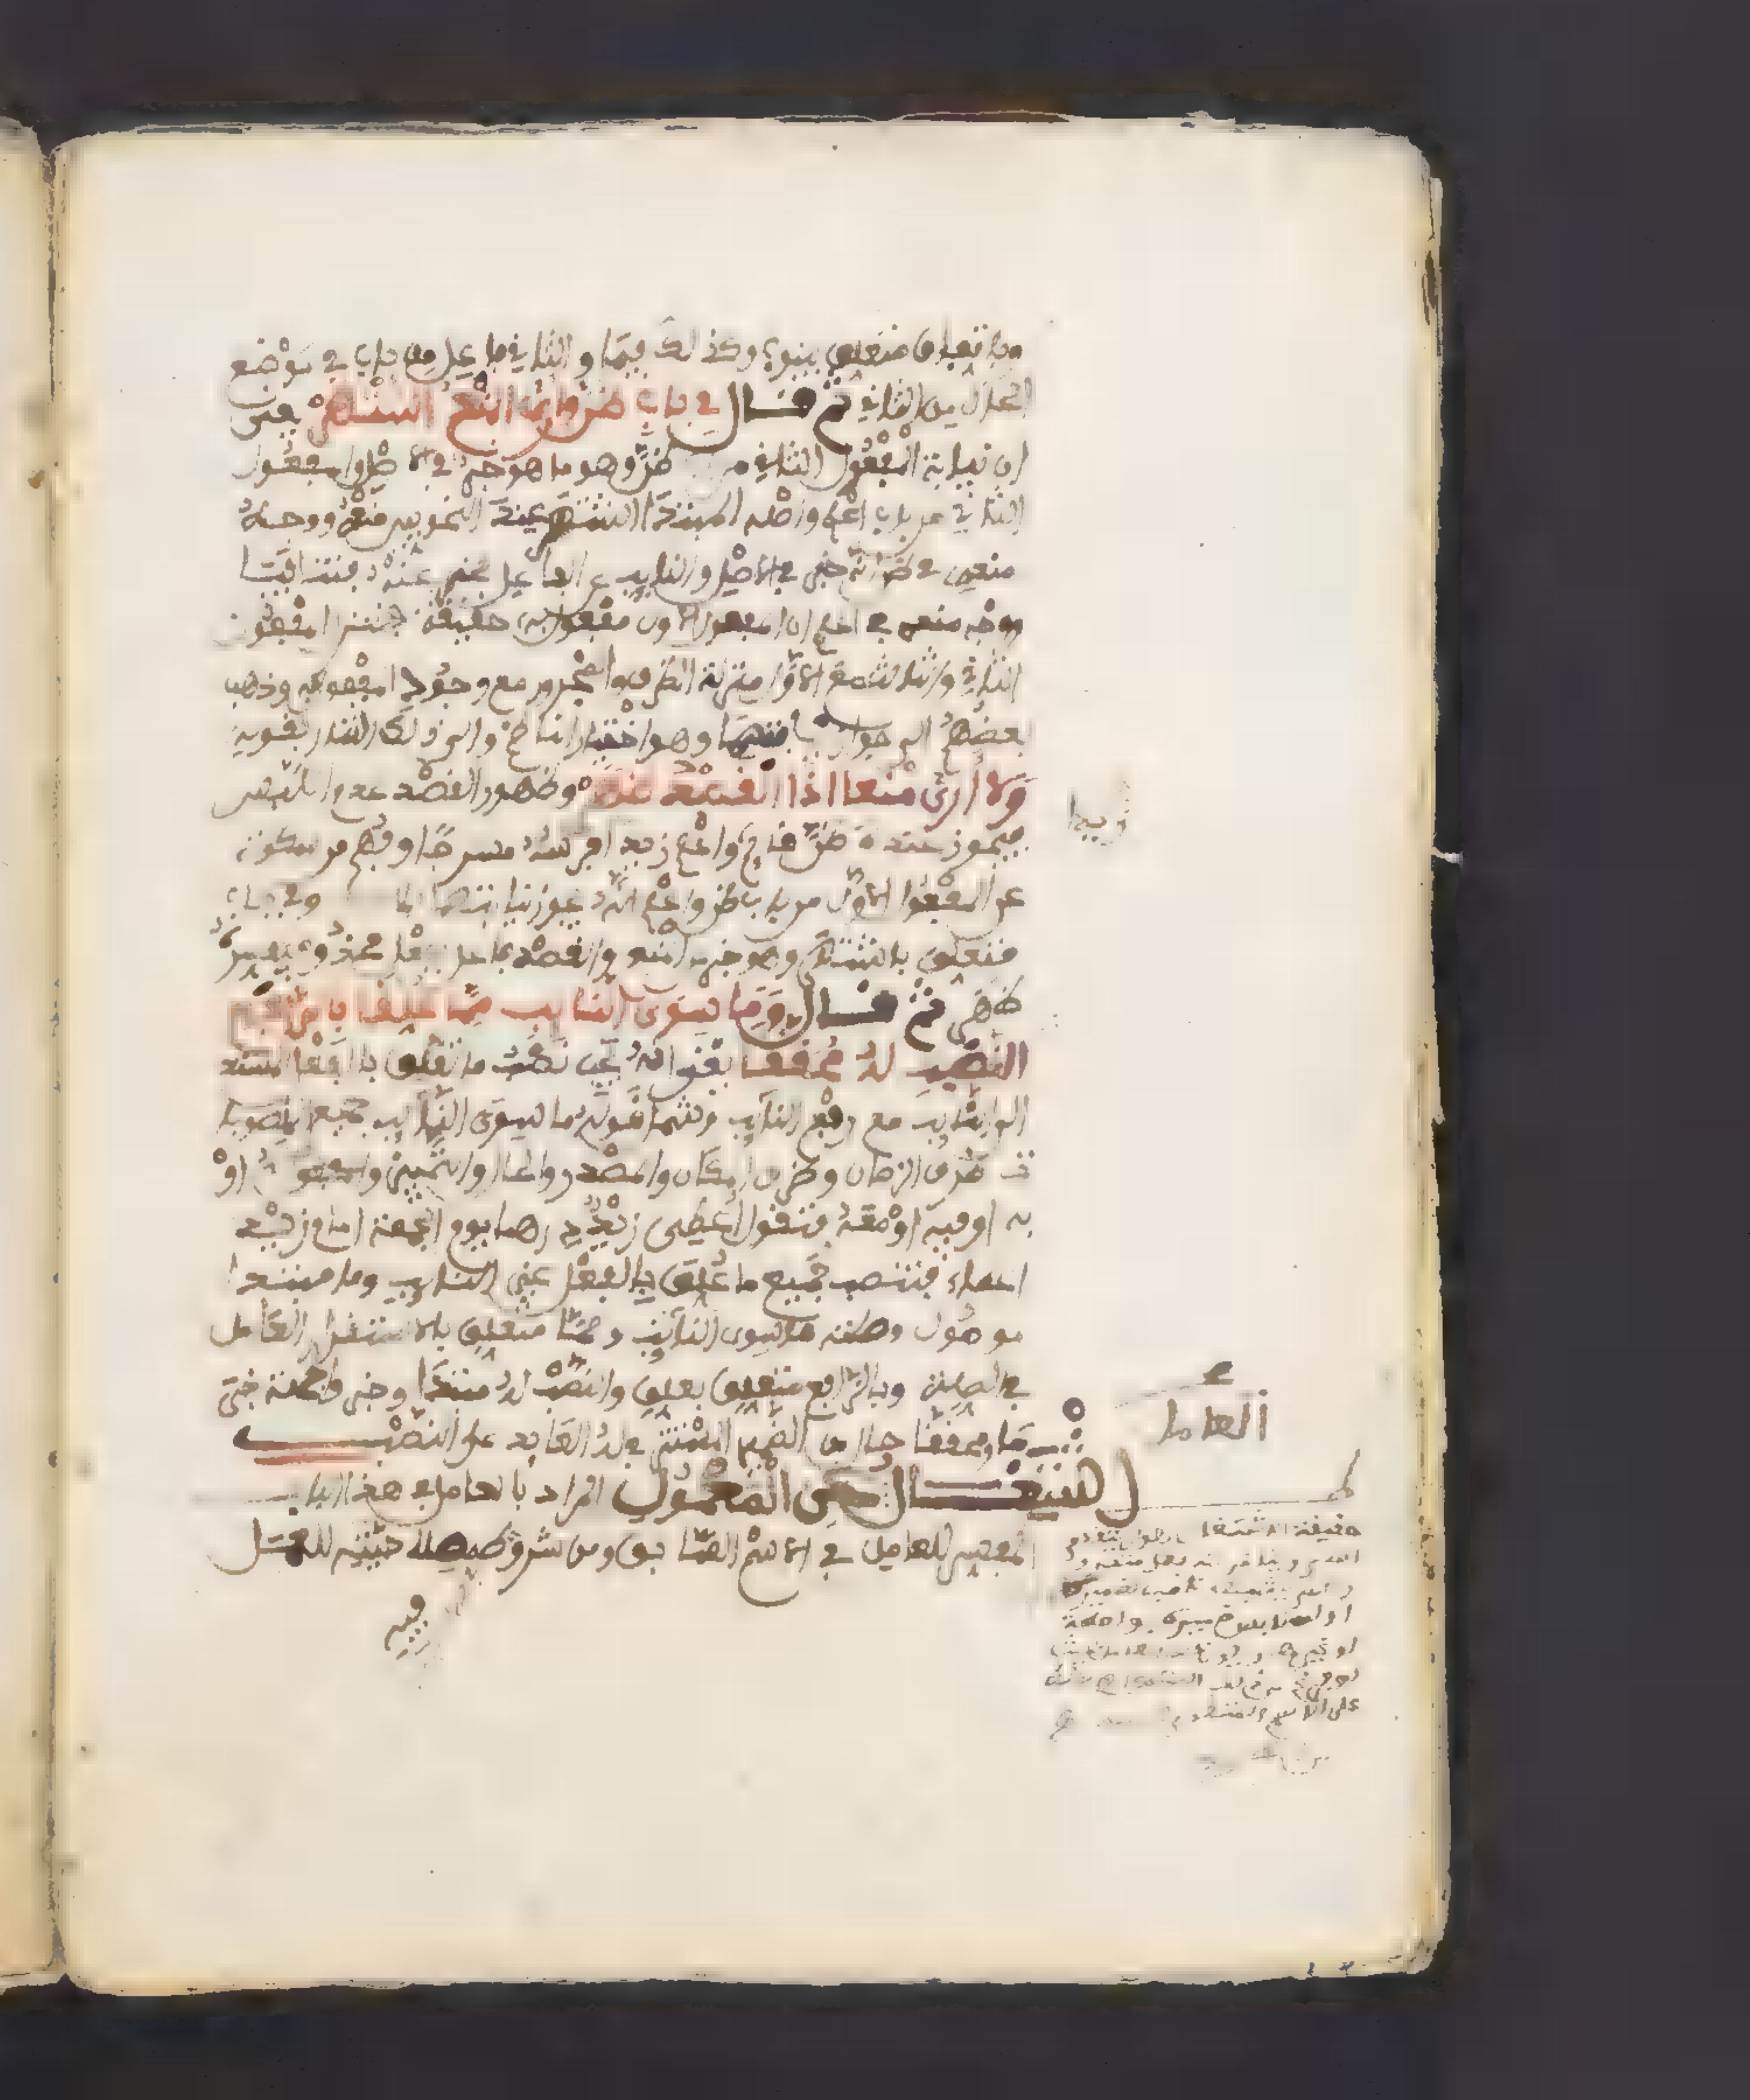 وباتفاق متعلق بينوب وكذلك فيما والثاني فاعل من باب في موضع
الحال من الثاني ثم قال في باب ظن وارى المنع اشتهر يعني
ان نيابة المفعول الثاني من ظن وهو ما هو خبر في الاصل والمفعول
الثاني من باب اعلم واصله المبتدا اشتهر عند النحويين منعه ووجه
منعهم في ظن انه خبر في الاصل والنايب عن الفاعل مخبر عنه فتنافيا
ووجه منعهم في اعلم ان المفعول الاول مفعول به حقيقة فنزل المفعول
الثاني والثالث مع الاول منزلة الظرف والمجرور مع وجود المفعول به وذهب
بعضهم الى جواز نيابتهما وهو اختيار الناظم والى ذلك اشار بقوله
ولا ارى منعا اذا القصد ظهر وظهور القصد عدم اللبس
فيجوز عنده ظن قائم واعلم زيد افرسه مسرجا وفهم من سكوته
عن المفعول الاول من باب ظن واعلم انه يجوز نيابتهما وفي باب
متعلق باشتهر وهو خبر المنع والقصد فاعل بفعل محذوف يفسره
ظهر ثم قال وما سوى النايب مما علقا بالرافع
النصب له محققا يعني انه يجب نصب ما تعلق بالفعل المسند
الى النايب مع رفع النايب فشمل قوله ما سوى النايب جميع المنصوبا
ت ظرف الزمان وظرف المكان والمصدر والحال والتمييز والمفعول له او
به او فيه او معه فتقول اعطي زيد درهما يوم الجمعة امام زيد
اعطاء فتنصب جميع ما علق بالفعل غير النايب وما مبتدا
موصول وصلته سوى النايب ومما متعلق بالاستقرار العامل
في الصلة وبالرافع متعلق بعلق والنصب له مبتدا وخبر والجملة خبر
ما ومحققا حال من الضمير المستتر في له العايد على النصب
اشتغال العامل عن المعمول المراد بالعامل في هذا الباب
المفسر للعامل في الاسم السابق ومن شروطه صلاحيته للعمل
فيه
زيدا
العامل
حقيقة الاشتغال ان يتقدم
او لملابس ضميره
على الاسم المتقدم